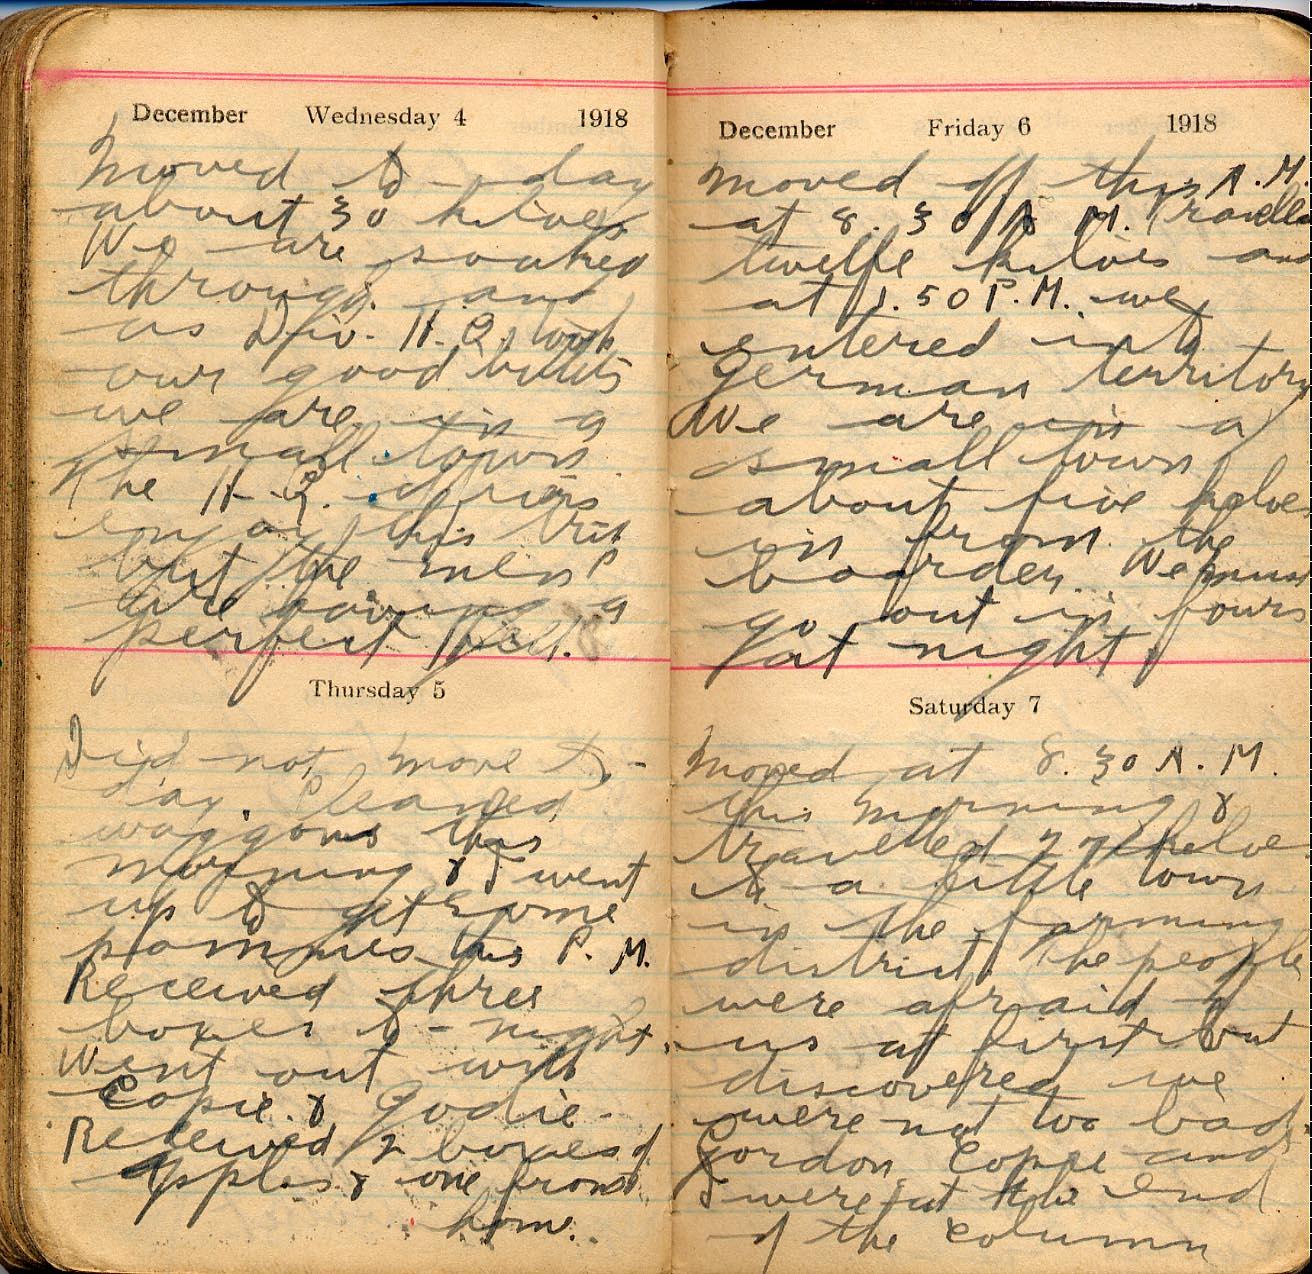 December Wednesday 4 1918
Moved to-day
about 30 kilves
We are soaked
through and
as Div. H.Q. took
our good billits
we are in a
small town.
The H.Q.
enjoy this trip
but the men
are having a
perfect Hell.
Thursday 5
Did not move to-
day. Cleaned
waggons this
morning & I went
up to get some
pommies this P.M.
Received three
boxes to-night.
Went out with
Copie & Godie.
Received 2 boxes of
apples & one from
home.
December Friday 6 1918
Moved off this A.M.
at 8.30 A.M. Travelled
twelfe kilves and
at 1.50 P.M. we
entered into
German territory
We are in a
small town
about five kilves
in from the
boarder. We must
go out in fours
at night.
Saturday 7
Moved at 8.30 A.M.
this morning &
travelled 27 kilves
to a little town
in the farming
district. The people
were afraid of
us at first but
discovered we
were not too bad.
Gordon Coppe and
I were at the end
of the column